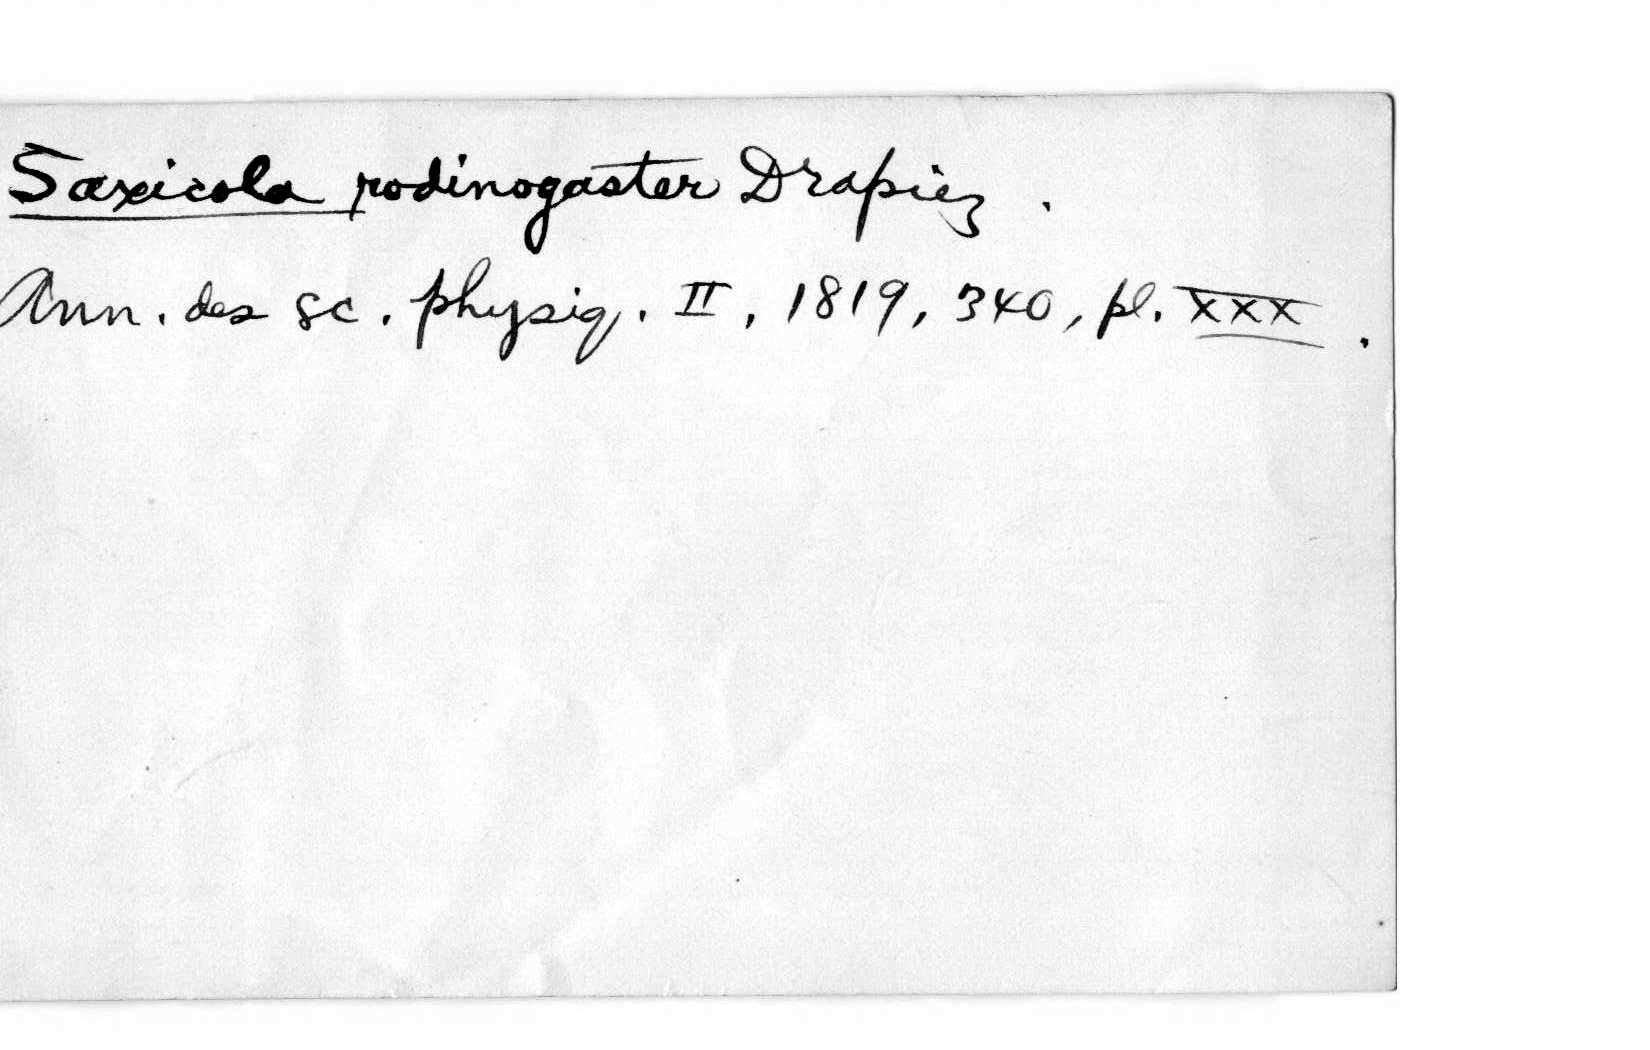 Saxicola rodinogaster Drapiez.
Ann. des sc. physiq. II, 1819, 340, pl. XXX.